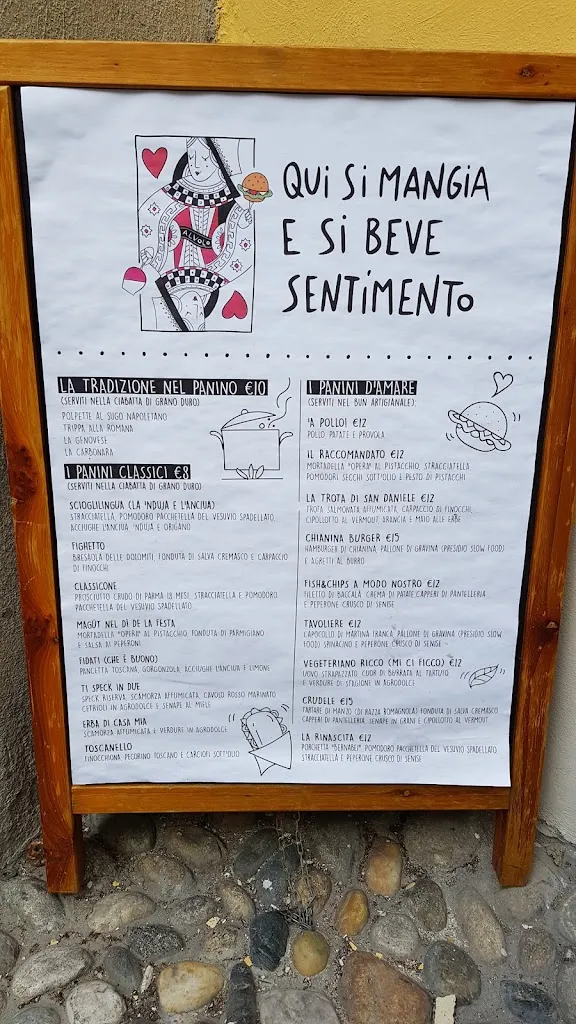 QUI SI MANGIA
E SI BEVE
SENTIMENTO
ALVOLO
LA TRADIZIONE NEL PANINO €10
(SERVITI NELLA CIABATTA DI GRANO DURO)
POLPETTE AL SUGO NAPOLETANO
TRIPPA ALLA ROMANA
LA GENOVESE
LA CARBONARA
I PANINI CLASSICI €8
(SERVITI NELLA CIABATTA DI GRANO DURO)
SCIOGLILINGUA (LA 'NDUJA E L'ANCIUA)
STRACCIATELLA, POMODORO PACCHETELLA DEL VESUVIO SPADELLATO,
ACCIUGHE L'ANCIUA, 'NDUJA E ORIGANO
FIGHETTO
BRESAOLA DELLE DOLOMITI, FONDUTA DI SALVA CREMASCO E CARPACCIO
DI FINOCCHI
CLASSICONE
PROSCIUTTO CRUDO DI PARMA 18 MESI, STRACCIATELLA E POMODORO
PACCHETELLA DEL VESUVIO SPADELLATO
MAGÜT NEL DÌ DE LA FESTA
MORTADELLA "OPERA" AL PISTACCHIO, FONDUTA DI PARMIGIANO
E SALSA AI PEPERONI
FIDATI (CHE È BUONO)
PANCETTA TOSCANA, GORGONZOLA, ACCIUGHE L'ANCIUA E LIMONE
TI SPECK IN DUE
SPECK RISERVA, SCAMORZA AFFUMICATA, CAVOLO ROSSO MARINATO,
CETRIOLI IN AGRODOLCE E SENAPE AL MIELE
ERBA DI CASA MIA
SCAMORZA AFFUMICATA E VERDURE IN AGRODOLCE
TOSCANELLO
FINOCCHIONA, PECORINO TOSCANO E CARCIOFI SOTT'OLIO
I PANINI D'AMARE
(SERVITI NEL BUN ARTIGIANALE):
'A POLLO! €12
POLLO, PATATE E PROVOLA
IL RACCOMANDATO €12
MORTADELLA "OPERA" AL PISTACCHIO, STRACCIATELLA,
POMODORI SECCHI SOTT'OLIO E PESTO DI PISTACCHI
LA TROTA DI SAN DANIELE €12
TROTA SALMONATA AFFUMICATA, CARPACCIO AI FINOCCHI,
CIPOLLOTTO AL VERMOUT ARANCIA E MAIO ALLE ERBE
CHIANINA BURGER €15
HAMBURGER DI CHIANINA, PALLONE DI GRAVINA (PRESIDIO SLOW FOOD)
E AGRETTI AL BURRO
FISH&CHIPS A MODO NOSTRO €12
FILETTO DI BACCALÀ, CREMA DI PATATE,CAPPERI DI PANTELLERIA
E PEPERONE CRUSCO DI SENISE
TAVOLIERE €12
CAPOCOLLO DI MARTINA FRANCA, PALLONE DI GRAVINA (PRESIDIO SLOW
FOOD) SPINACINO E PEPERONE CRUSCO DI SENISE
VEGETERIANO RICCO (MI CI FICCO) €12
UOVO STRAPAZZATO, CUOR DI BURRATA AL TARTUFO
E VERDURE DI STAGIONE IN AGRODOLCE
CRUDELE €15
TARTARE DI MANZO (DI RAZZA ROMAGNOLA) FONDUTA DI SALVA CREMASCO
CAPPERI DI PANTELLERIA, SENAPE IN GRANI E CIPOLLOTTO AL VERMOUT
LA RINASCITA €12
PORCHETTA "BERNABEI", POMODORO PACCHETELLA DEL VESUVIO SPADELLATO
STRACCIATELLA E PEPERONE CRUSCO DI SENISE